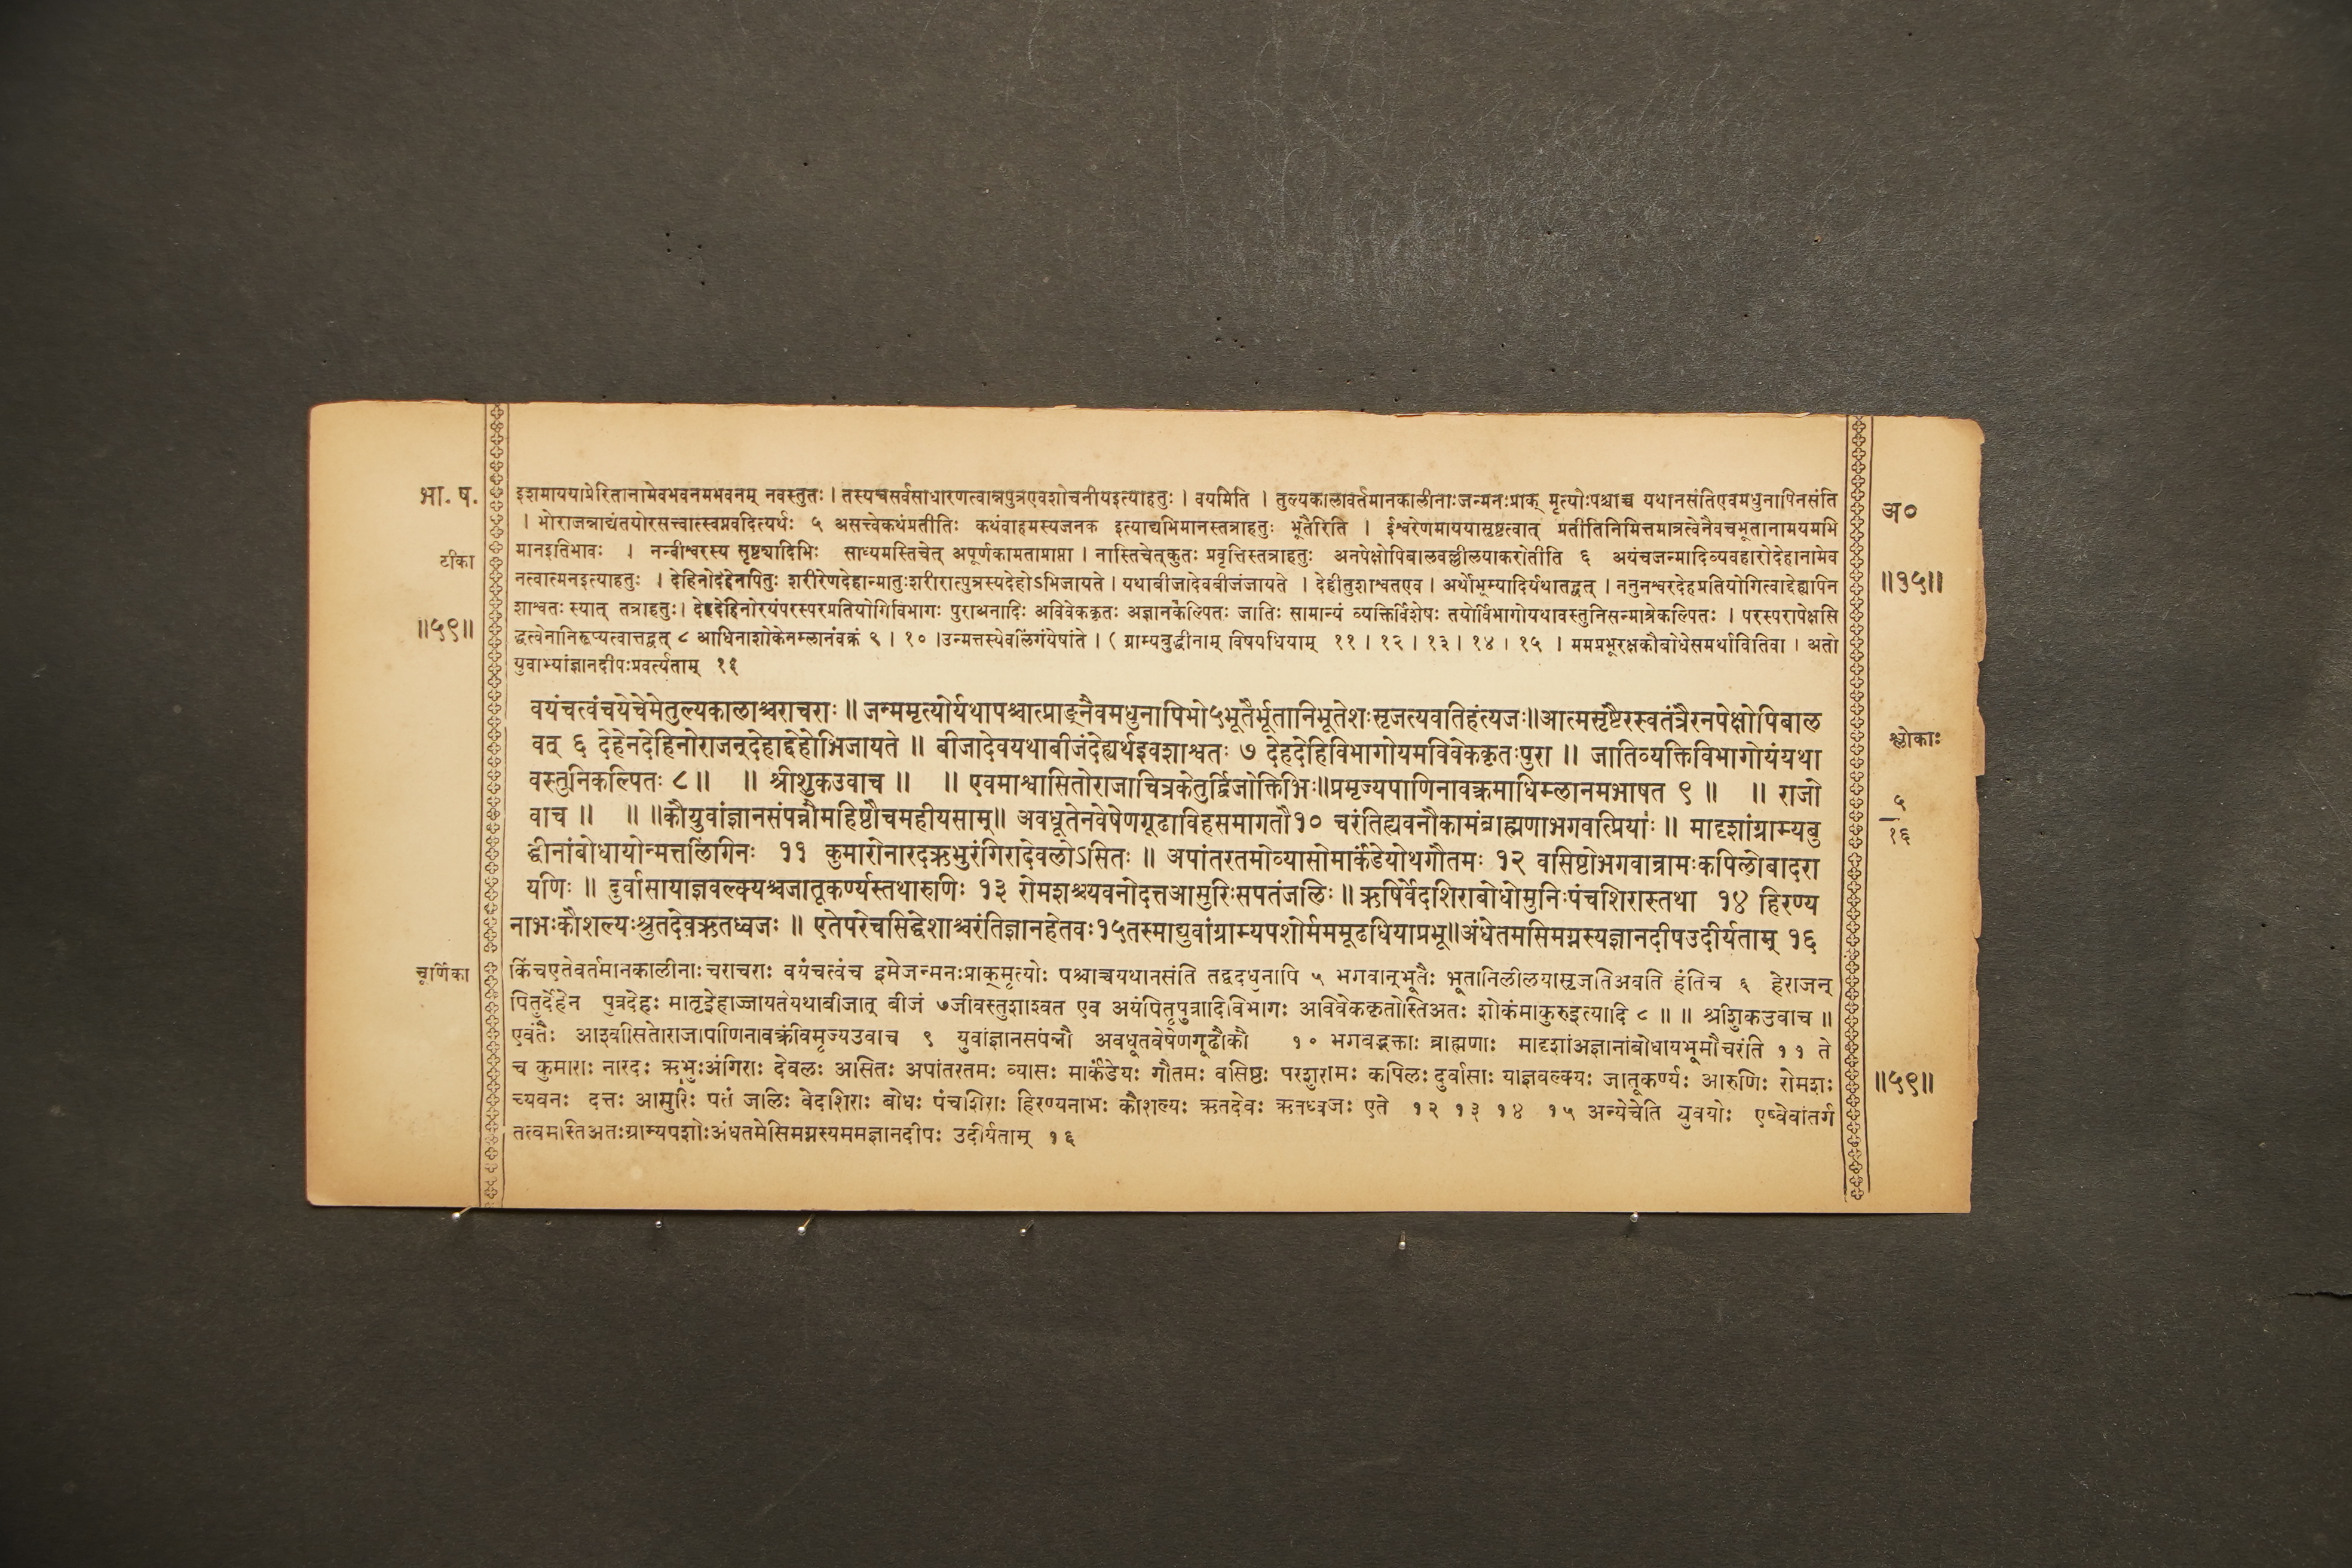 भा. ष.
टीका
॥५९॥
इशमाययाप्रेरितानामेवभवनमभवनम् नवस्तुतः । तस्यचसर्वसाधारणत्वान्नपुत्रएवशोचनीयइत्याहतुः । वयमिति । तुल्यकालावर्तमानकालीनाःजन्मनःप्राक् मृत्योःपश्चाच्च यथानसंतिएवमधुनापिनसंति
। भोराजन्नाद्यंतयोरसत्त्वात्स्वप्नवदित्यर्थः ५ असत्त्वेकथंप्रतीतिः कथंवाहमस्यजनक इत्याद्यभिमानस्तत्राहतुः भूतैरिति । ईश्वरेणमाययासृष्टत्वात् प्रतीतिनिमित्तमात्रत्वेनैवचभूतानामयमभि
मानइतिभावः । नन्वीश्वरस्य सृष्ट्यादिभिः साध्यमस्तिचेत् अपूर्णकामताप्राप्ता । नास्तिचेत्कुतः प्रवृत्तिस्तत्राहतुः अनपेक्षोपिबालवल्लीलयाकरोतीति ६ अयंचजन्मादिव्यवहारोदेहानामेव
नत्वात्मनइत्याहतुः । देहिनोदेहेनपितुः शरीरेणदेहान्मातुःशरीरात्पुत्रस्यदेहोऽभिजायते । यथाबीजादेवबीजंजायते । देहीतुशाश्वतएव । अर्थोभूम्यादिर्यथातद्वत् । ननुनश्वरदेहप्रतियोगित्वाद्देह्यपिन
शाश्वतः स्यात् तत्राहतुः। देहदेहिनोरयंपरस्परप्रतियोगिविभागः पुराअनादिः अविवेककृतः अज्ञानकल्पितः जातिः सामान्यं व्यक्तिर्विशेषः तयोर्विभागोयथावस्तुनिसन्मात्रेकल्पितः । परस्परापेक्षसि
द्धत्वेनानिरूप्यत्वात्तद्वत् ८ आधिनाशोकेनम्लानंवक्रं ९ । १० ।उन्मत्तस्येवलिंगंयेषांते । ( ग्राम्यबुद्धीनाम् विषयधियाम् ११ । १२ । १३ । १४ । १५ । ममप्रभूरक्षकौबोधेसमर्थावितिवा । अतो
युवाभ्यांज्ञानदीपःप्रवर्त्यताम् १६
वयंचत्वंचयेचेमेतुल्यकालाश्चराचराः ॥ जन्ममृत्योर्यथापश्चात्प्राङ्नैवमधुनापिभो५भूतैर्भूतानिभूतेशःसृजत्यवतिहंत्यजः॥आत्मसृष्टैरस्वतंत्रैरनपेक्षोपिबाल
वत् ६ देहेनदेहिनोराजन्देहाद्देहोभिजायते ॥ बीजादेवयथाबीजंदेह्यर्थइवशाश्वतः ७ देहदेहिविभागोयमविवेककृतःपुरा ॥ जातिव्यक्तिविभागोयंयथा
वस्तुनिकल्पितः ८॥ ॥ श्रीशुकउवाच ॥ ॥ एवमाश्वासितोराजाचित्रकेतुर्द्विजोक्तिभिः॥प्रमृज्यपाणिनावक्रमाधिम्लानमभाषत ९ ॥ ॥ राजो
वाच ॥ ॥ ॥कौयुवांज्ञानसंपन्नौमहिष्ठौचमहीयसाम्॥ अवधूतेनवेषेणगूढाविहसमागतौ१० चरंतिह्यवनौकामंब्राह्मणाभगवत्प्रियाः ॥ मादृशांग्राम्यबु
द्धीनांबोधायोन्मत्तलिंगिनः ११ कुमारोनारदऋभुरंगिरादेवलोऽसितः ॥ अपांतरतमोव्यासोमार्कंडेयोथगौतमः १२ वसिष्ठोभगवान्रामःकपिलोबादरा
यणिः ॥ दुर्वासायाज्ञवल्क्यश्चजातूकर्ण्यस्तथारुणिः १३ रोमशश्च्यवनोदत्तआसुरिःसपतंजलिः ॥ ऋषिर्वेदशिराबोधोमुनिःपंचशिरास्तथा १४ हिरण्य
नाभःकौशल्यःश्रुतदेवऋतध्वजः ॥ एतेपरेचसिद्धेशाश्चरंतिज्ञानहेतवः१५तस्माद्युवांग्राम्यपशोर्मममूढधियाप्रभू॥अंधेतमसिमग्नस्यज्ञानदीपउदीर्यताम् १६
चूर्णिका
किंचएतेवर्तमानकालीनाः चराचराः वयंचत्वंच इमेजन्मनःप्राक्मृत्योः पश्चाच्चयथानसंति तद्वदधुनापि ५ भगवान्भूतैः भूतानिलीलयासृजतिअवति हंतिच ६ हेराजन्
पितुर्देहेन पुत्रदेहः मातृदेहाज्जायतेयथाबीजात् बीजं ७जीवस्तुशाश्वत एव अयंपितृपुत्रादिविभागः अविवेककृतोस्तिअतः शोकंमाकुरुइत्यादि ८ ॥ ॥ श्रीशुकउवाच ॥
एवंतैः आश्वासितोराजापाणिनावक्रंविमृज्यउवाच ९ युवांज्ञानसंपन्नौ अवधूतवेषेणगूढौकौ १० भगवद्भक्ताः ब्राह्मणाः मादृशांअज्ञानांबोधायभूमौचरंति ११ ते
च कुमाराः नारदः ऋभुःअंगिराः देवलः असितः अपांतरतमः व्यासः मार्कंडेयः गौतमः वसिष्ठः परशुरामः कपिलः दुर्वासाः याज्ञवल्क्यः जातूकर्ण्यः आरुणिः रोमशः
च्यवनः दत्तः आसुरिः पतं जलिः वेदशिराः बोधः पंचशिराः हिरण्यनाभः कौशल्यः ऋतदेवः ऋतध्वजः एते १२ १३ १४ १५ अन्येचेति युवयोः एष्वेवांतर्ग
तत्वमस्तिअतःग्राम्यपशोःअंधतमेसिमग्नस्यममज्ञानदीपः उदीर्यताम् १६
अ०
॥१५॥
श्लोकाः
५
१६
॥५९॥